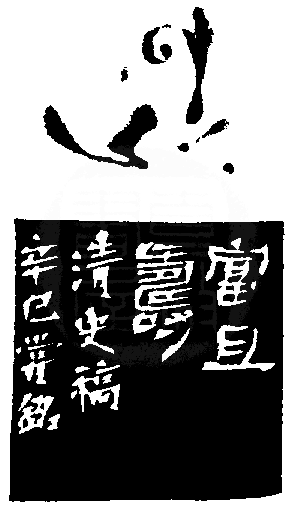 富且
壽
清史稿
辛巳 銘